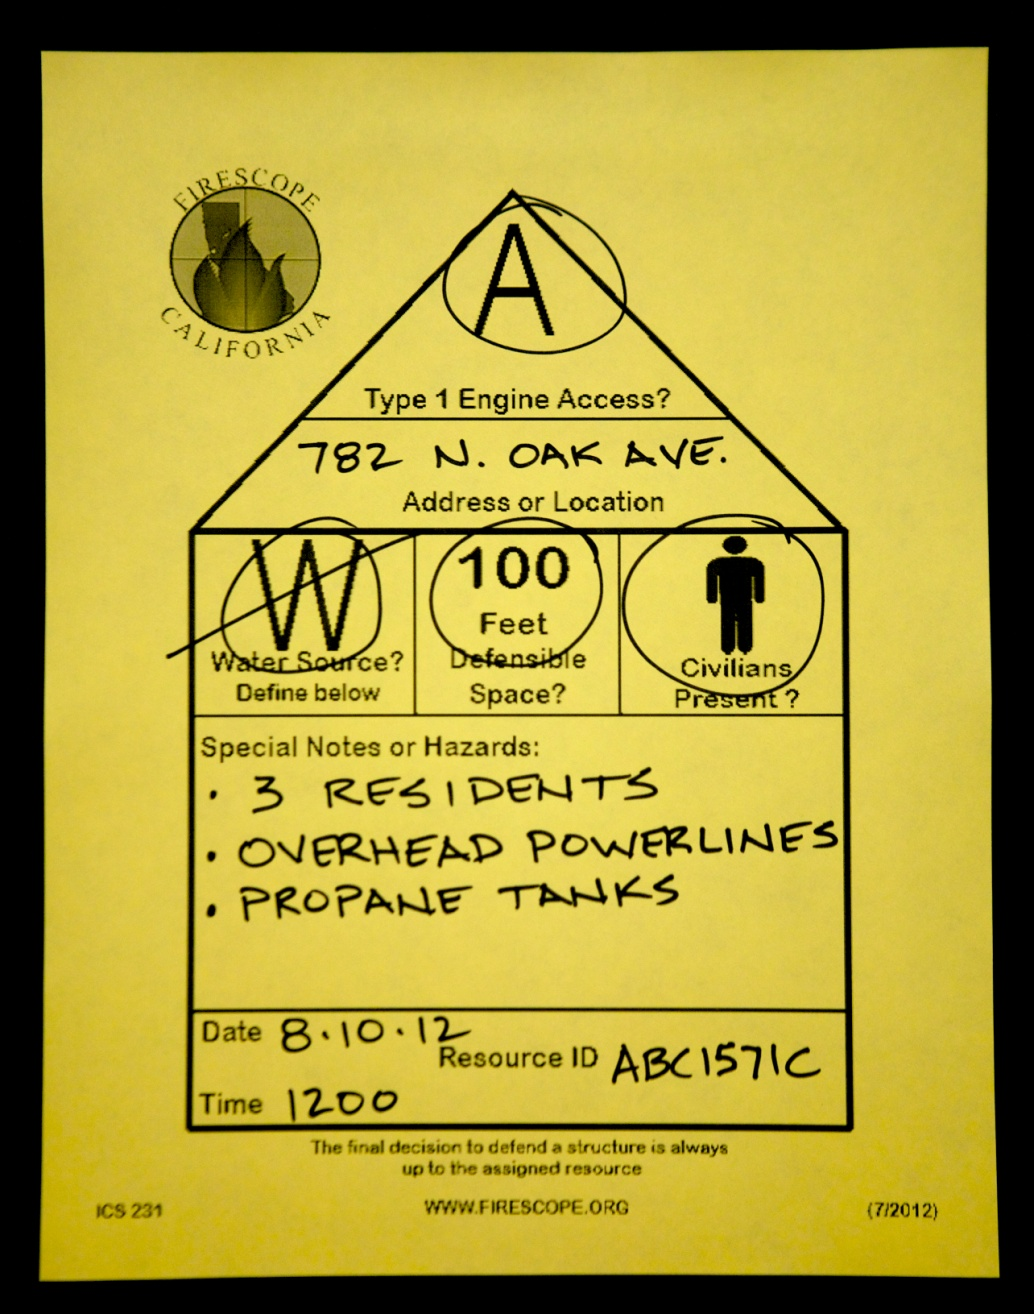 FIRESCOPE
CALIFORNIA
A
Type 1 Engine Access?
782 N. OAK AVE.
Address or Location
W
Water Source?
Define below
100
Feet
Defensible
Space?
Civilians
Present ?
Special Notes or Hazards:
• 3 RESIDENTS
• OVERHEAD POWERLINES
• PROPANE TANKS
Date 8.10.12
Resource ID ABC1571C
Time 1200
The final decision to defend a structure is always
up to the assigned resource
ICS 231 WWW.FIRESCOPE.ORG (7/2012)